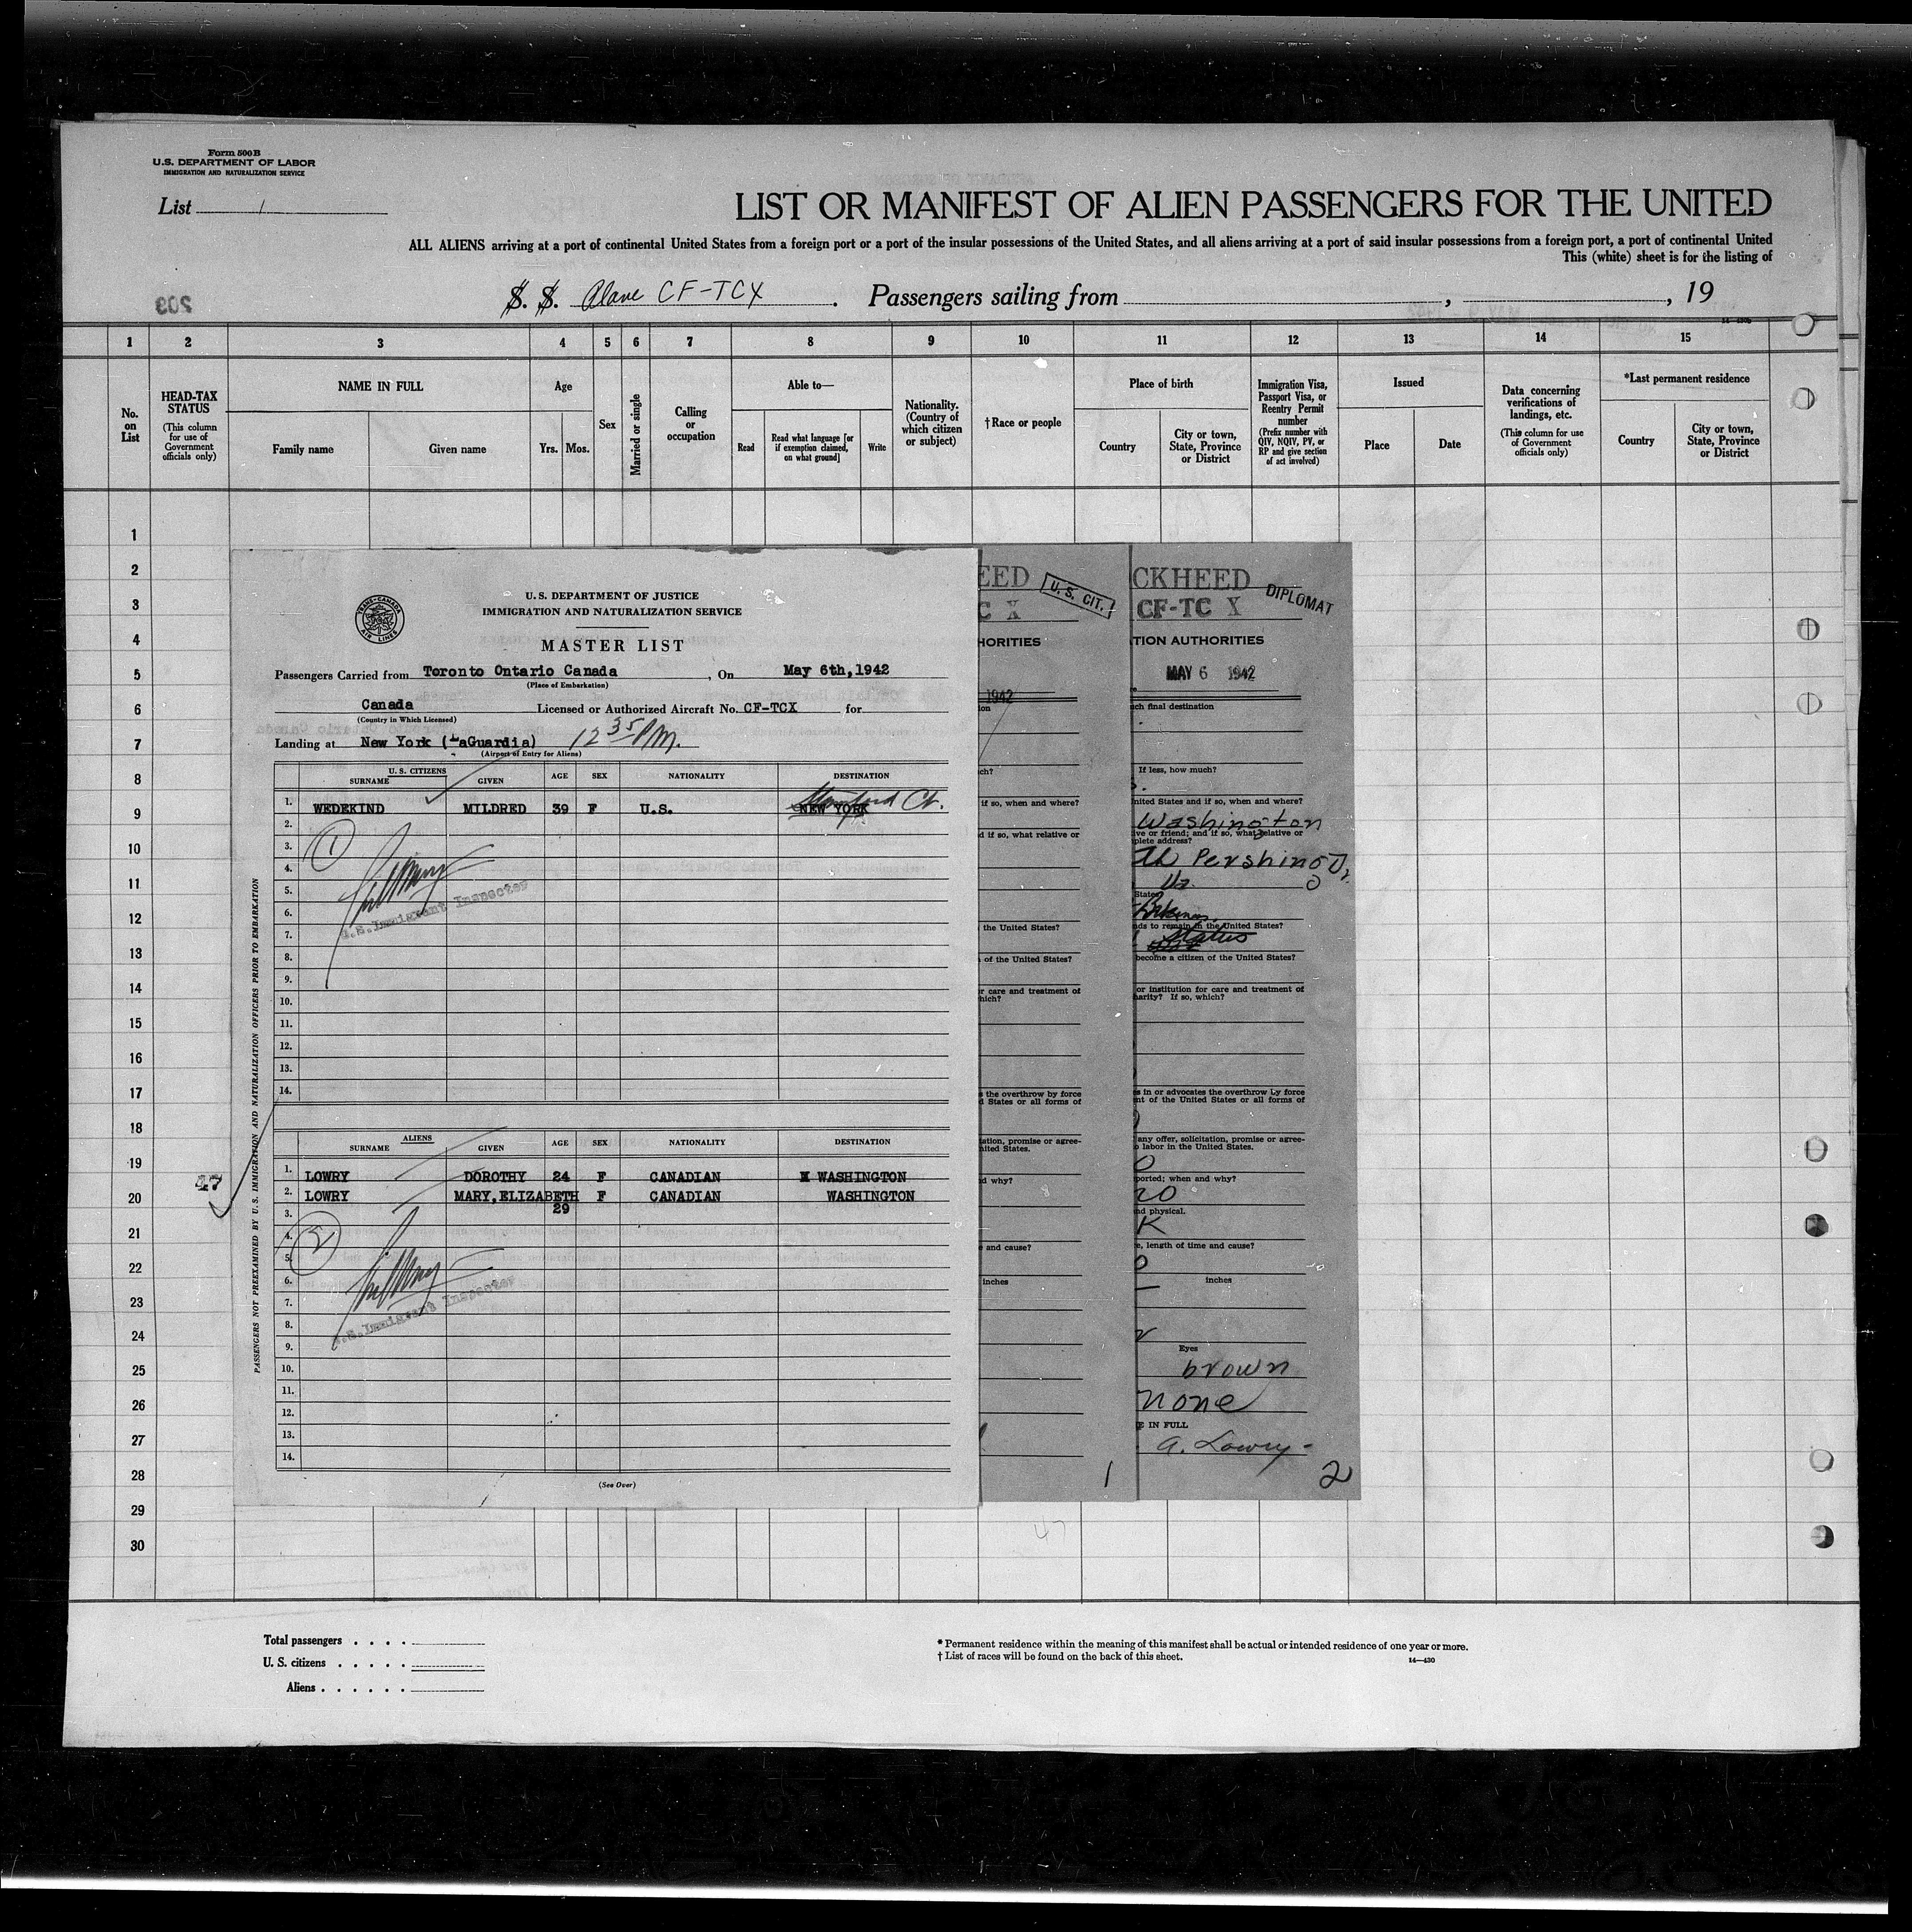 Form 500 B
U.S. DEPARTMENT OF LABOR
IMMIGRATION AND NATURALIZATION SERVICE
List 1
LIST OR MANIFEST OF ALIEN PASSENGERS FOR THE UNITED
ALL ALIENS arriving at a port of continental United States from a foreign port or a port of the insular possessions of the United States, and all aliens arriving at a port of said insular possessions from a foreign port, a port of continental United
This (white) sheet is for the listing of
S. S. Plane CF-TCX. Passengers sailing from , , 19
209
1 2 3 4 5 6 7 8 9 10 11 12 13 14 15
No. on List
HEAD-TAX STATUS
(This column for use of Government officials only)
NAME IN FULL
Family name Given name
Age
Yrs. Mos.
Sex
Married or single
Calling or occupation
Able to—
Read
Read what language [or if exemption claimed, on what ground]
Write
Nationality. (Country of which citizen or subject)
† Race or people
Place of birth
Country
City or town, State, Province or District
Immigration Visa, Passport Visa, or Reentry Permit number
(Prefix number with QIV, NQIV, PV, or RP and give section of act involved)
Issued
Place Date
Data concerning verifications of landings, etc.
(This column for use of Government officials only)
*Last permanent residence
Country
City or town, State, Province or District
1
2
3
4
5
6
7
8
9
10
11
12
13
14
15
16
17
18
19
20
21
22
23
24
25
26
27
28
29
30
47
TRANS-CANADA AIR LINES
U.S. DEPARTMENT OF JUSTICE
IMMIGRATION AND NATURALIZATION SERVICE
MASTER LIST
Passengers Carried from Toronto Ontario Canada, On May 6th,1942
(Place of Embarkation)
Canada Licensed or Authorized Aircraft No. CF-TCX for
(Country in Which Licensed)
Landing at New York (LaGuardia) 12 35 PM.
(Airport of Entry for Aliens)
U. S. CITIZENS
SURNAME GIVEN AGE SEX NATIONALITY DESTINATION
1. WEDEKIND MILDRED 39 F U.S. NEW YORK Stamford Ct.
2.
3.
4.
5.
6.
7.
8.
9.
10.
11.
12.
13.
14.
1
U.S. Immigrant Inspector
PASSENGERS NOT PREEXAMINED BY U. S. IMMIGRATION AND NATURALIZATION OFFICERS PRIOR TO EMBARKATION
ALIENS
SURNAME GIVEN AGE SEX NATIONALITY DESTINATION
1. LOWRY DOROTHY 24 F CANADIAN WASHINGTON
2. LOWRY MARY,ELIZABETH F CANADIAN WASHINGTON
3. 29
4.
5.
6.
7.
8.
9.
10.
11.
12.
13.
14.
2
U.S. Immigrant Inspector
(See Over)
EED
U. S. CIT.
C X
HORITIES
1942
ion
ch?
if so, when and where?
d if so, what relative or
the United States?
of the United States?
r care and treatment of
hich?
s the overthrow by force
d States or all forms of
ation, promise or agree-
nited States.
d why?
e and cause?
inches
1
CKHEED
DIPLOMAT
CF-TC X
TION AUTHORITIES
MAY 6 1942
ch final destination
If less, how much?
nited States and if so, when and where?
Washington
ive or friend; and if so, what relative or
plete address?
Pershing Dr.
Va.
State
nds to remain in the United States?
Status
become a citizen of the United States?
or institution for care and treatment of
harity? If so, which?
s in or advocates the overthrow by force
nt of the United States or all forms of
any offer, solicitation, promise or agree-
o labor in the United States.
ported; when and why?
no
nd physical.
e, length of time and cause?
inches
Eyes
brown
none
E IN FULL
a. Lowry
2
47
Total passengers . . . .
U. S. citizens . . . . .
Aliens . . . . . .
* Permanent residence within the meaning of this manifest shall be actual or intended residence of one year or more.
† List of races will be found on the back of this sheet.
14—430